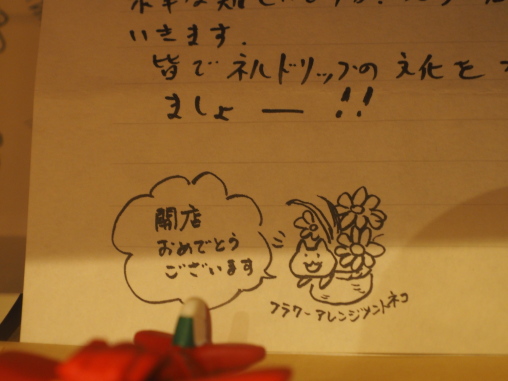 いきます.
皆でネルドリップの文化を
ましょー!!
開店
おめでとう
ございます
フラワーアレンジメントネコ